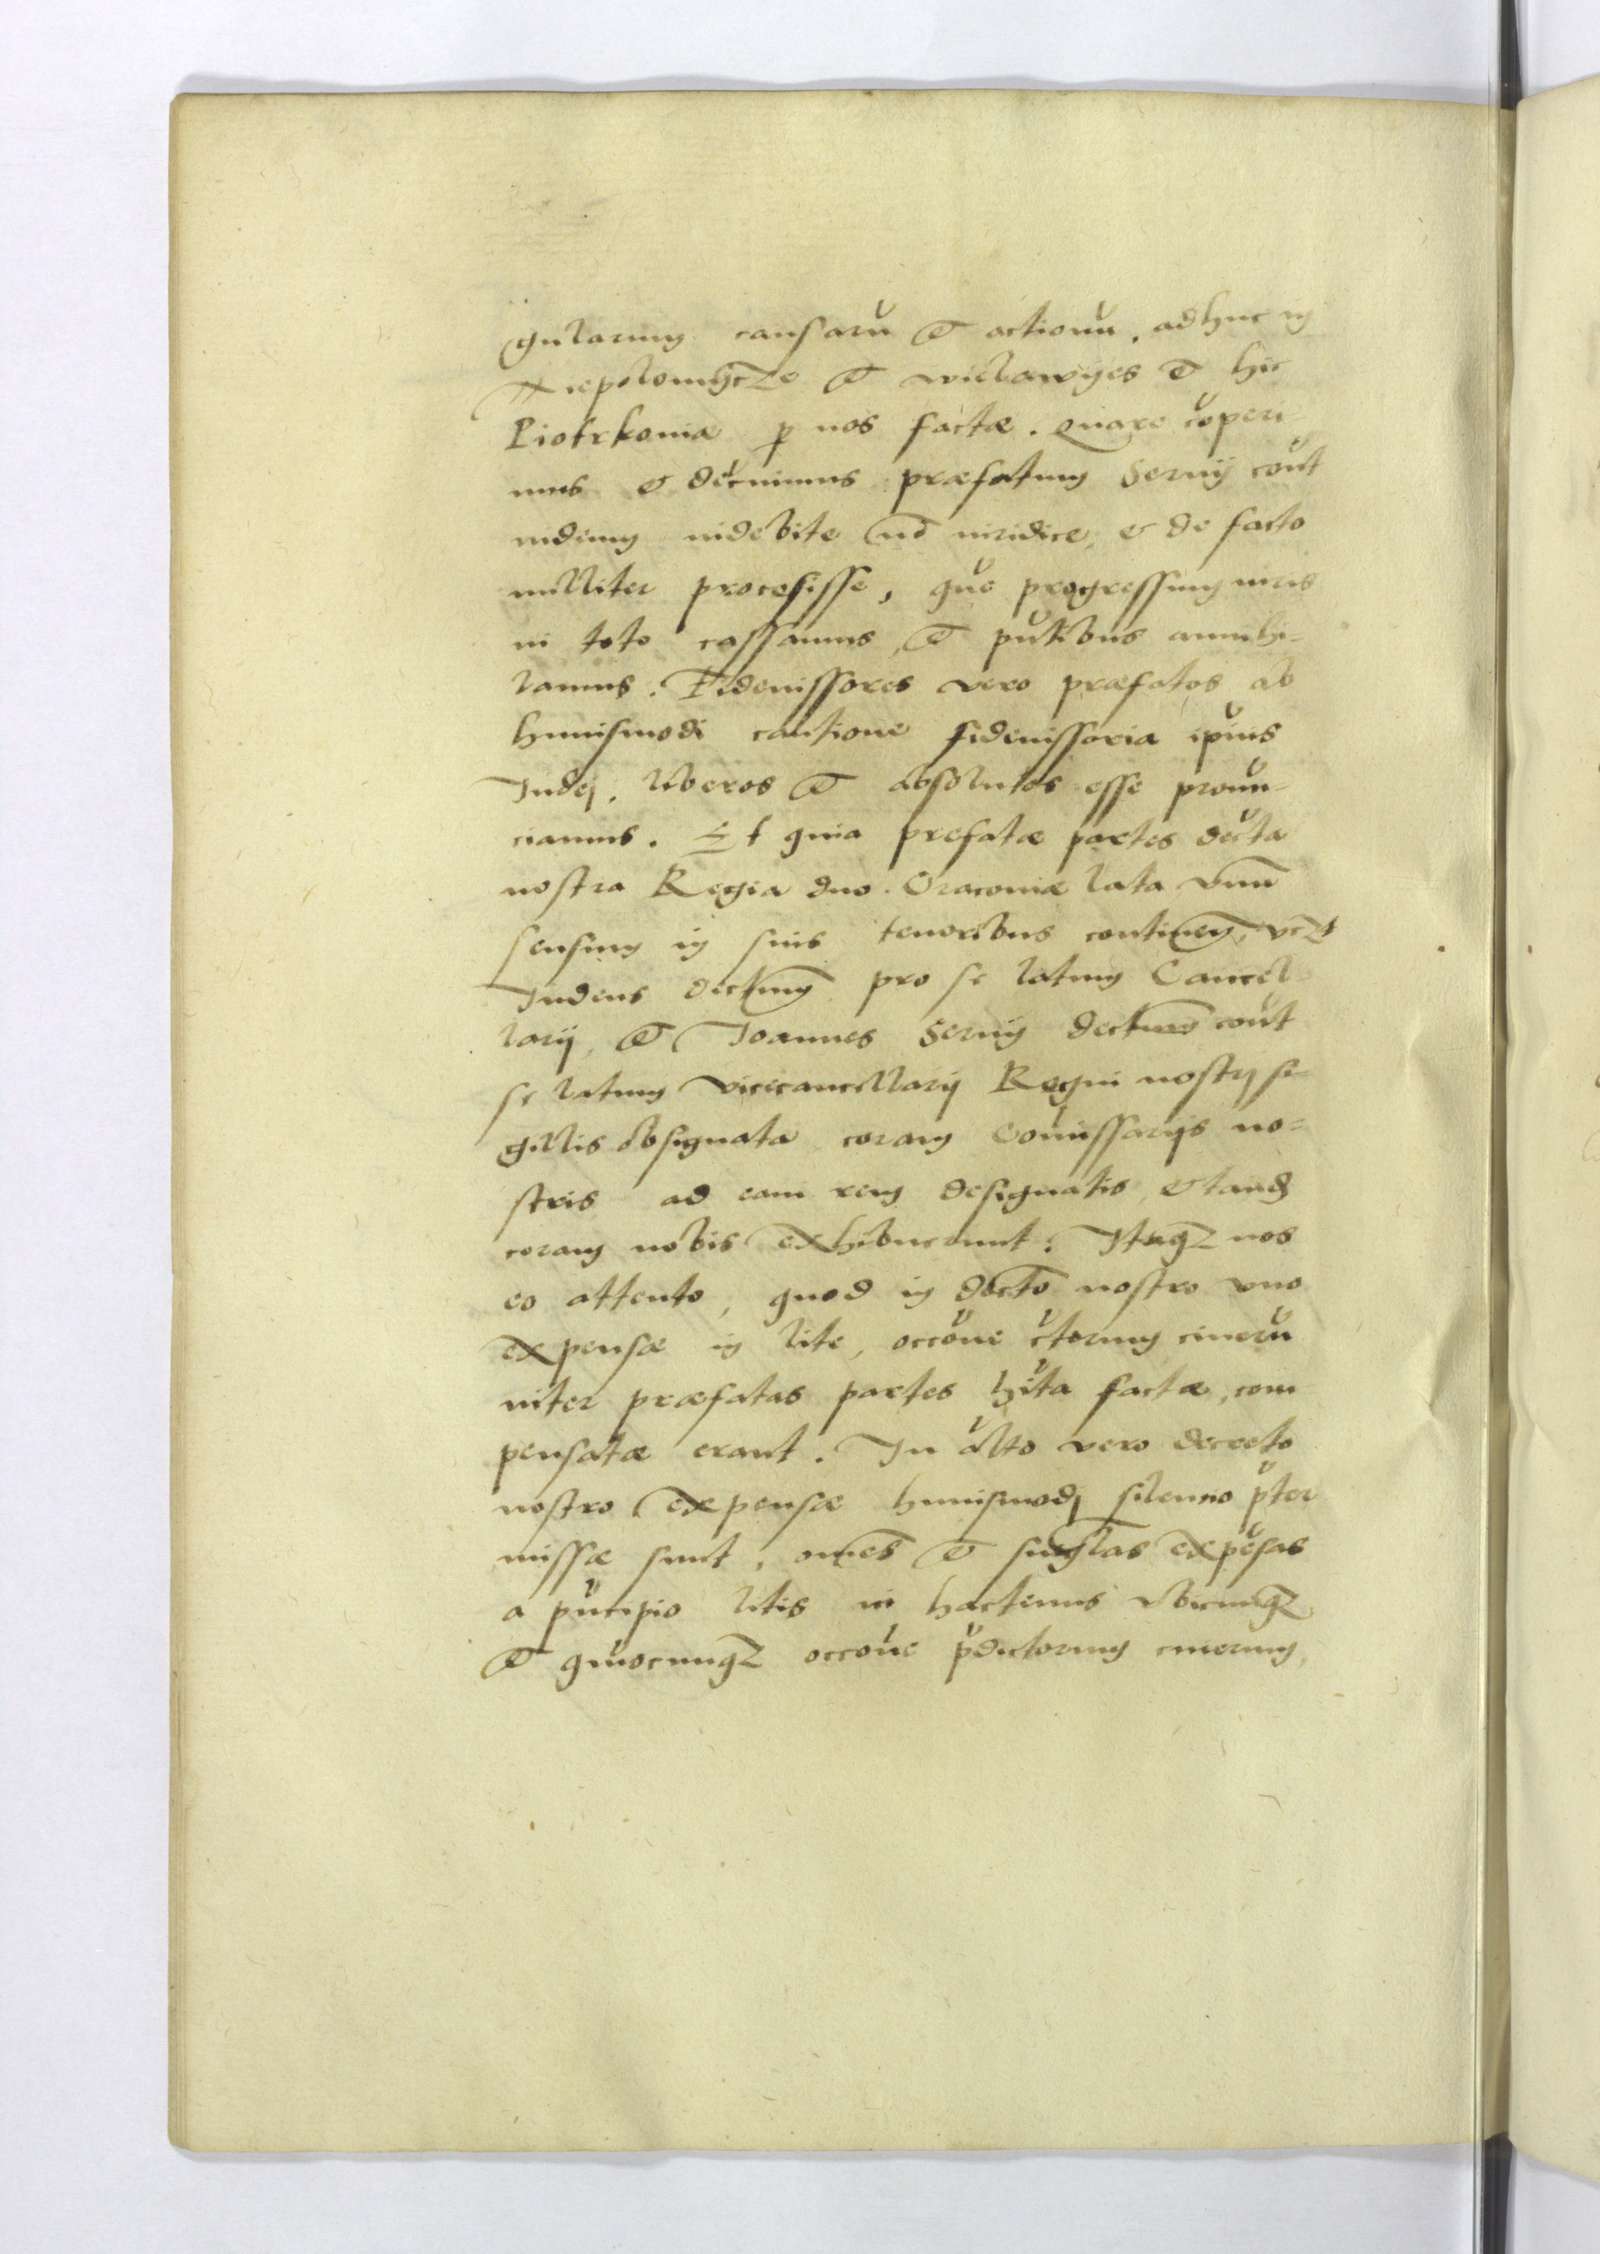 gularum causaru et actionu, adhuc in
Niepolomycze et wielawyes et hic
Piotrkoniæ p nos factæ. Quare coperi
mus et decnimus præfatum Serny cont
iudeum indebite no iuridice, et de facto
nulliter procesisse, que progressum iuris
in toto cassamus, et pntibus annihi-
lamus. Fideiussores vero præfatos ab
huiusmodi cautione fideiussoria ipius
Iudei, liberos et absolutos esse pronun-
ciamus. Et quia prefatæ partes decta
nostra Regia duo Cracouiæ lata vnum
sensum in suis tenoribus continen, vcz
Iudeus dectum pro se latum Cancel-
larij, et Joannes Serny dectum cont
se latum vicecancellarij Regni nostrj si-
gillis obsignata coram Comissarijs no-
stris ad eam rem designatis, et tandem
coram nobis exhibuerunt. Itaqz nos
eo attento, quod in decto nostro vno
expensæ in lite, occone ctorum cineru
inter præfatas partes hita factæ, com
pensatæ erant. In alto vero decreto
nostro expensæ huiusmodj silentio pter
missæ sunt, omes et singlas expesas
a pncipio litis in hactenus vbicunqz
et quocunqz occone pdictorum cinerum,